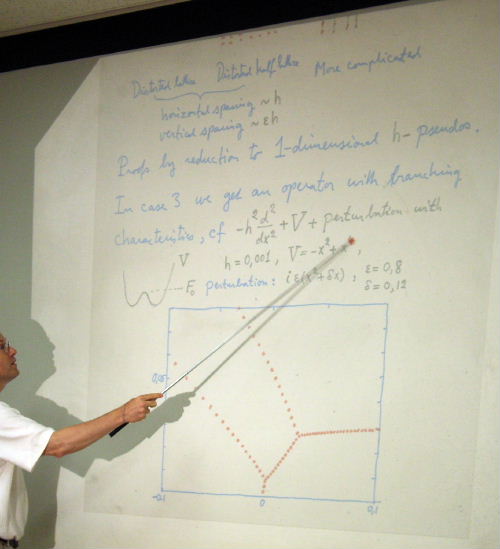 Distorted lattice Distorted half lattice More complicated
horizontal spacing ~ h
vertical spacing ~ εh
Proofs by reduction to 1-dimensional h-pseudos.
In case 3 we get an operator with branching
characteristics, cf -h² d²/dx² + V + perturbation with
h = 0,001, V = -x² + x
V
E₀ perturbation: iε(x² + δx), ε = 0,8
δ = 0,12
0,05
-0,1 0 0,1